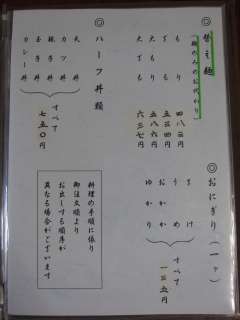 ◎替え麺
(麺のみのおかわり)
もり 四八三円
大もり 五八六円
◎おにぎり(一ヶ)
さけ
うめ
おかか
ゆかり
すべて 一三五円
◎ハーフ丼類
天丼
カツ丼
玉子丼
カレー丼
すべて 七五〇円
料理の手順に依り
御注文順より
お出しする順序が
異なる場合がございます